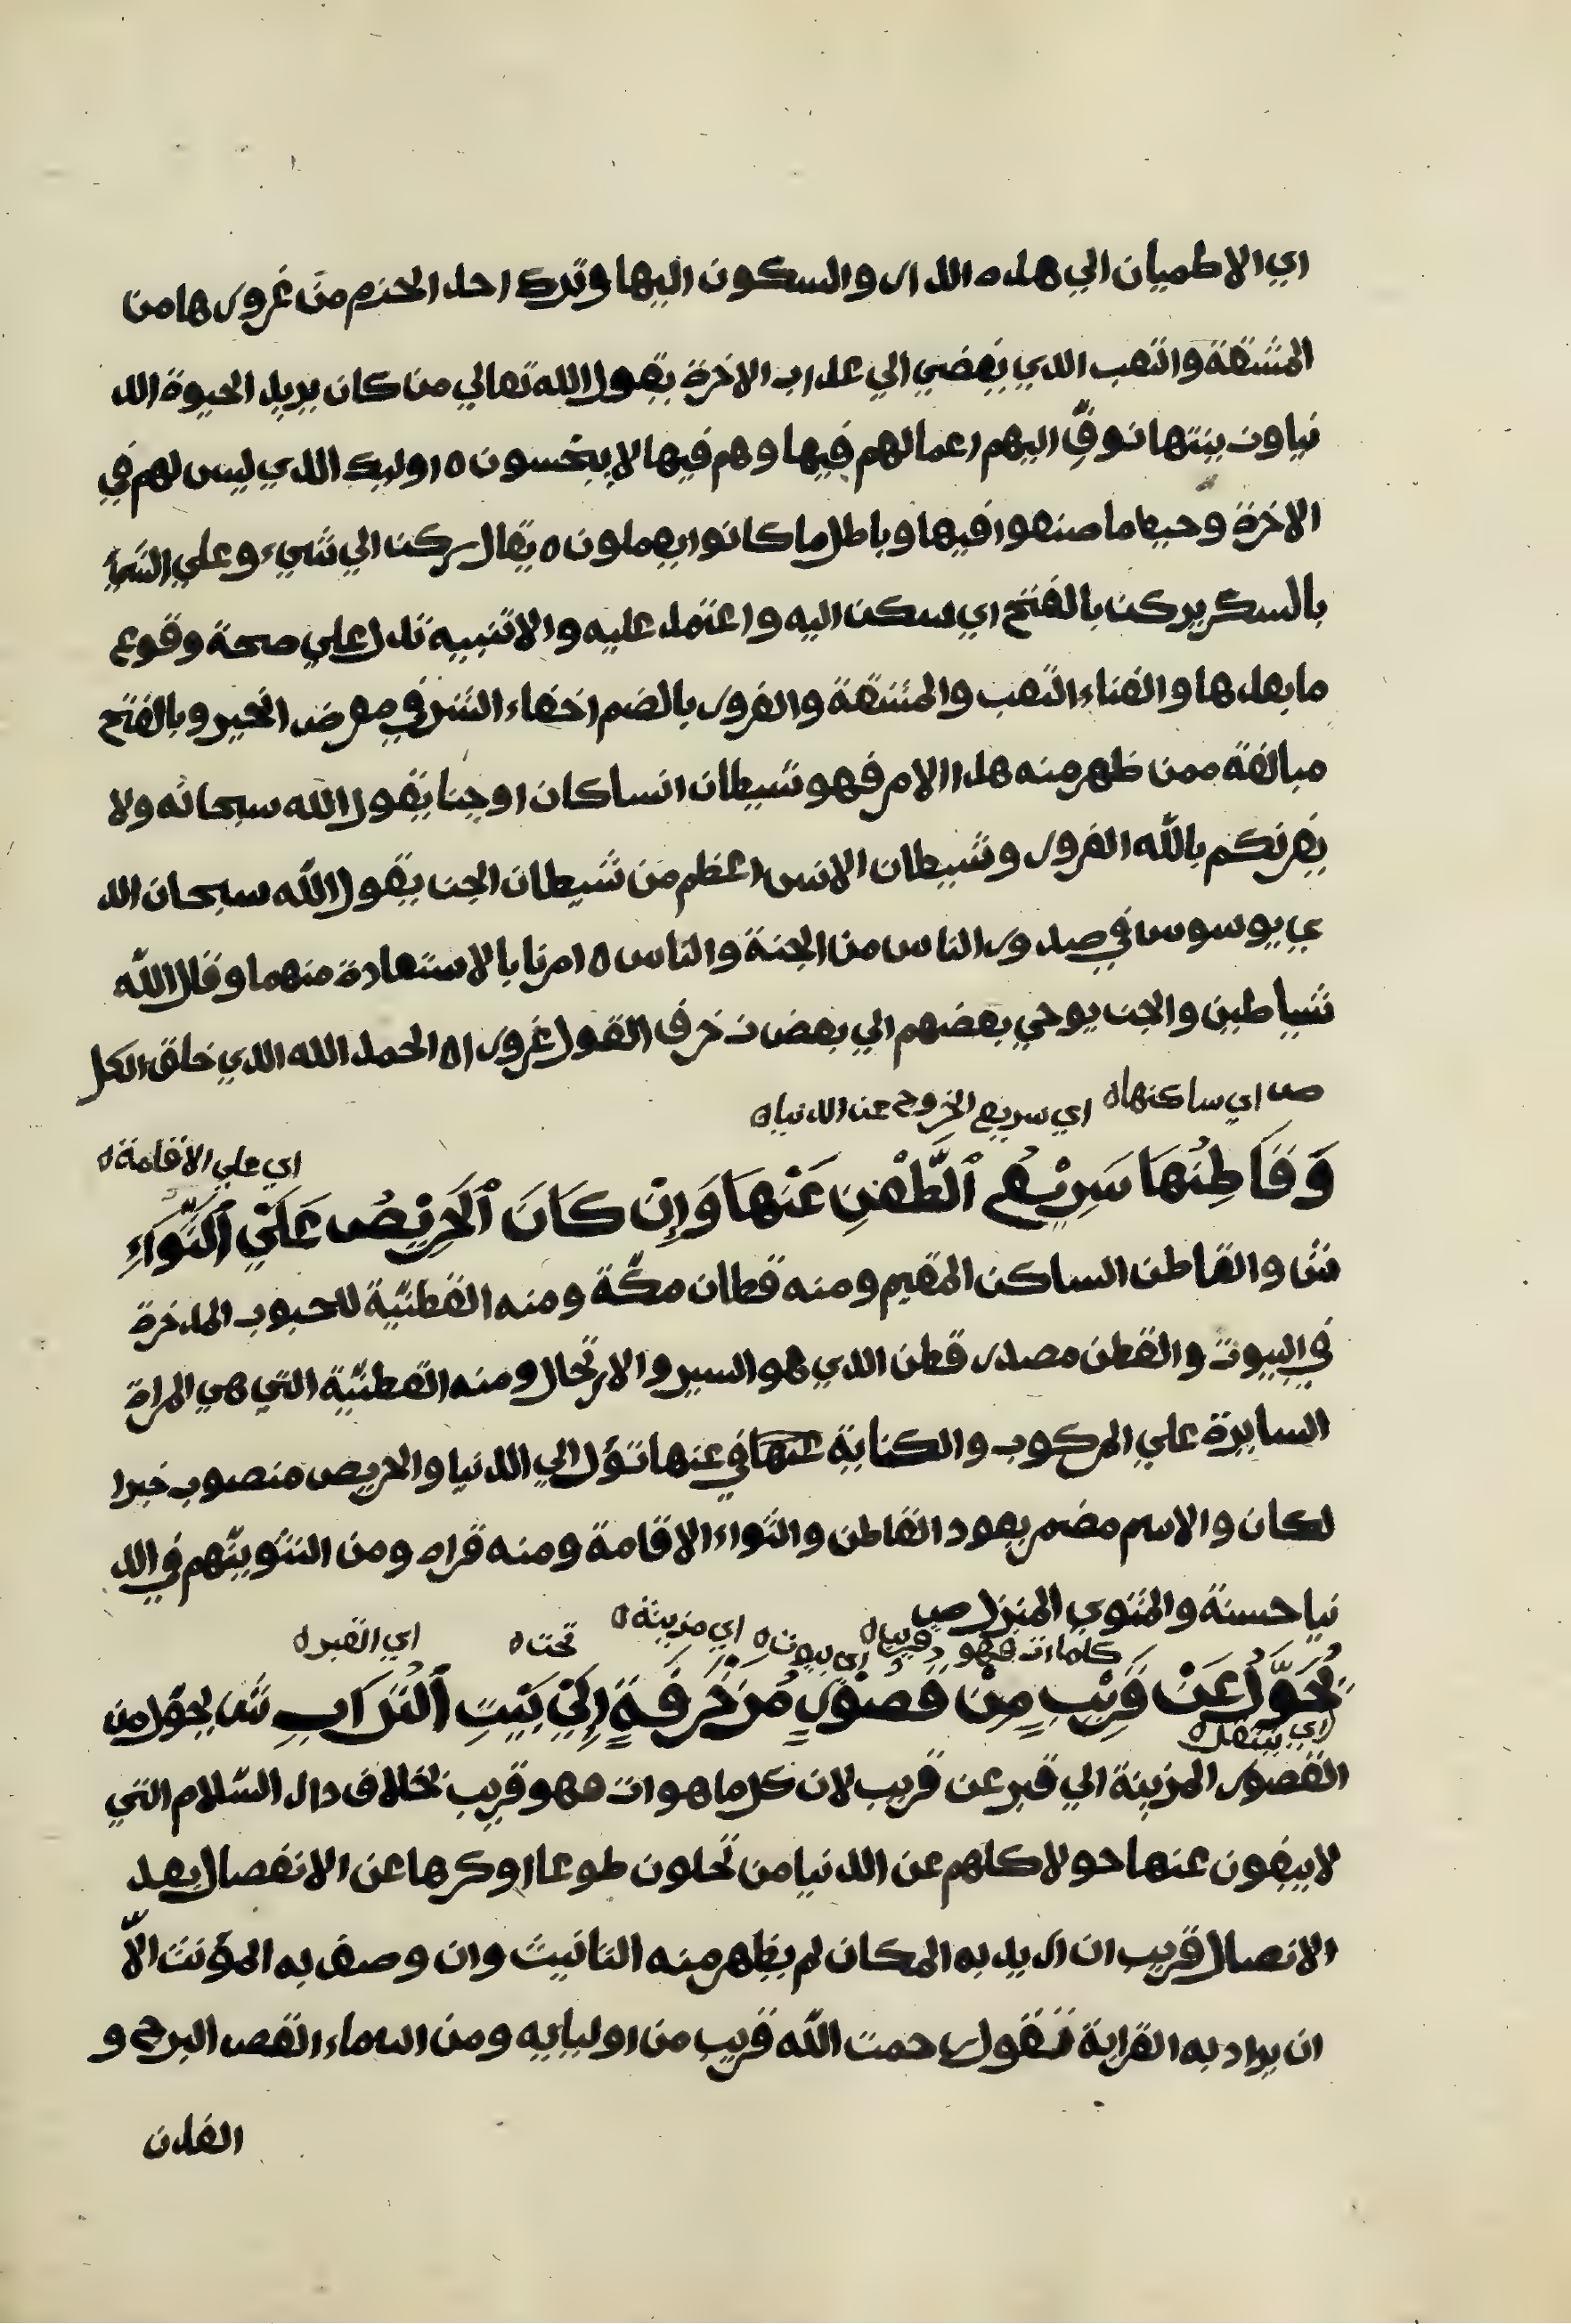 اي الاطميان الي هذه الدار والسكون اليها وترك اخذ الحزم من غرورها من
المشقة والتعب الذي يفضي الي عذاب الاخرة يقول الله تعالي من كان يريد الحيوة الد
نيا وزينتها نوف اليهم اعمالهم فيها وهم فيها لا يبخسون ه اوليك الذي ليس لهم في
الاخرة وحبط ما صنعوا فيها وباطل ما كانوا يعملون ه يقال ركن الي شيء وعلي الشيء
بالسكر يركن بالفتح اي سكن اليه واعتمد عليه والا تنبيه تدل علي صحة وقوع
ما بعدها والعناء التعب والمشقة والغرور بالضم اخفاء الشر في معرض الخير وبالفتح
مبالغة ممن ظهر منه هذا الامر فهو شيطان انسا كان او جنا يقول الله سبحانه ولا
يغرنكم بالله الغرور وشيطان الانس اعظم من شيطان الجن يقول الله سبحان الذ
ي يوسوس في صدور الناس من الجنة والناس ه امرنا بالاستعاذة منهما وقال الله
شياطين والجن يوحي بعضهم الي بعض زخرف القول غرورا ه الحمد الله الذي خلق الكل
ص اي ساكنها ه اي سريع الخروج عن الدنيا ه
اي علي الاقامة ه
وَقَاطِنُهَا سَرِيْعُ ٱلظَّعْنِ عَنْهَا وَإِنْ كَانَ ٱلْحَرِيْصُ عَلَيْ ٱلثَّوَاءِ
ش والقاطن الساكن المقيم ومنه قطان مكّة ومنه القطنيّة للحبوب المدخرة
في البيوت والظعن مصدر ظعن الذي هو السير والارتحال ومنه الظعنيّة التي هي المراة
السايرة علي المركوب والكناية عنها في عنها تؤل الي الدنيا والحريص منصوب خبرا
لكان والاسم مضمر يعود القاطن والثواء الاقامة ومنه قراه ومن النثوينّهم في الد
نيا حسنة والمثوي المنزل ص
كلما ات فهو قريب ه اي بيوت ه اي مزينة ه تحت ه اي القبر ه
يُحَوَّلُ عَنْ قَرِيْبٍ مِنْ قُصُوْرٍ مُزَخْرَفَةٍ إِلَيْ بَيْتِ ٱلتُّرَابِ ش يحوّل من
اي ينتقل ه
القصور المزينة الي قبر عن قريب لان كل ما هو ات فهو قريب بخلاف دار السّلام التي
لا يبغون عنها حولا كلهم عن الدنيا من تحلون طوعا او كرها عن الانفصال بعد
الاتصال قريب ان اريد به المكان لم يظهر منه التانيث وان وصف به المؤنث الاّ
ان يراد به القرابة فتقول رحمت الله قريب من اوليايه ومن اسماء القصر البرج و
الفدن